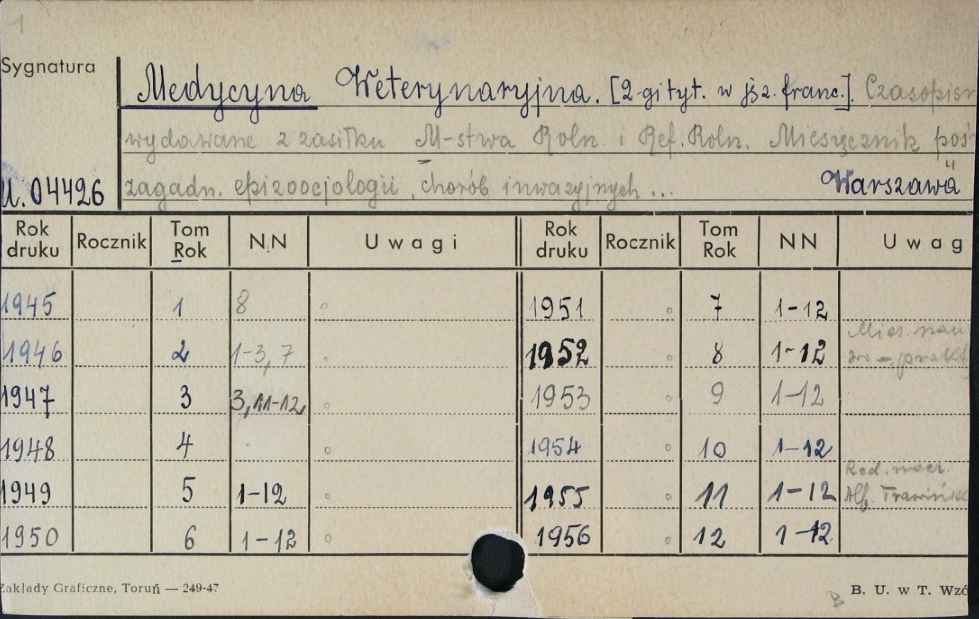 1
Sygnatura
Medycyna Weterynaryjna. [2-gi tyt. w jęz. franc.]. Czasopism
wydawane z zasiłku M-stwa Roln. i Ref. Roln. Miesięcznik poś
U. 04426 zagadn. epizoocjologii, chorób inwazyjnych ... Warszawa
Rok druku Rocznik Tom Rok NN Uwagi Rok druku Rocznik Tom Rok NN Uwag
1945 1 8 1951 7 1-12
1946 2 1-3, 7 1952 8 1-12 Mies. nau
1947 3 3, 11-12, 1953 9 1-12
1948 4 1954 10 1-12
1949 5 1-12 1955 11 1-12 Red. nacz. Alf. Trawińsk
1950 6 1-12 1956 12 1-12
Zakłady Graficzne, Toruń — 249-47 B. U. w T. Wzó